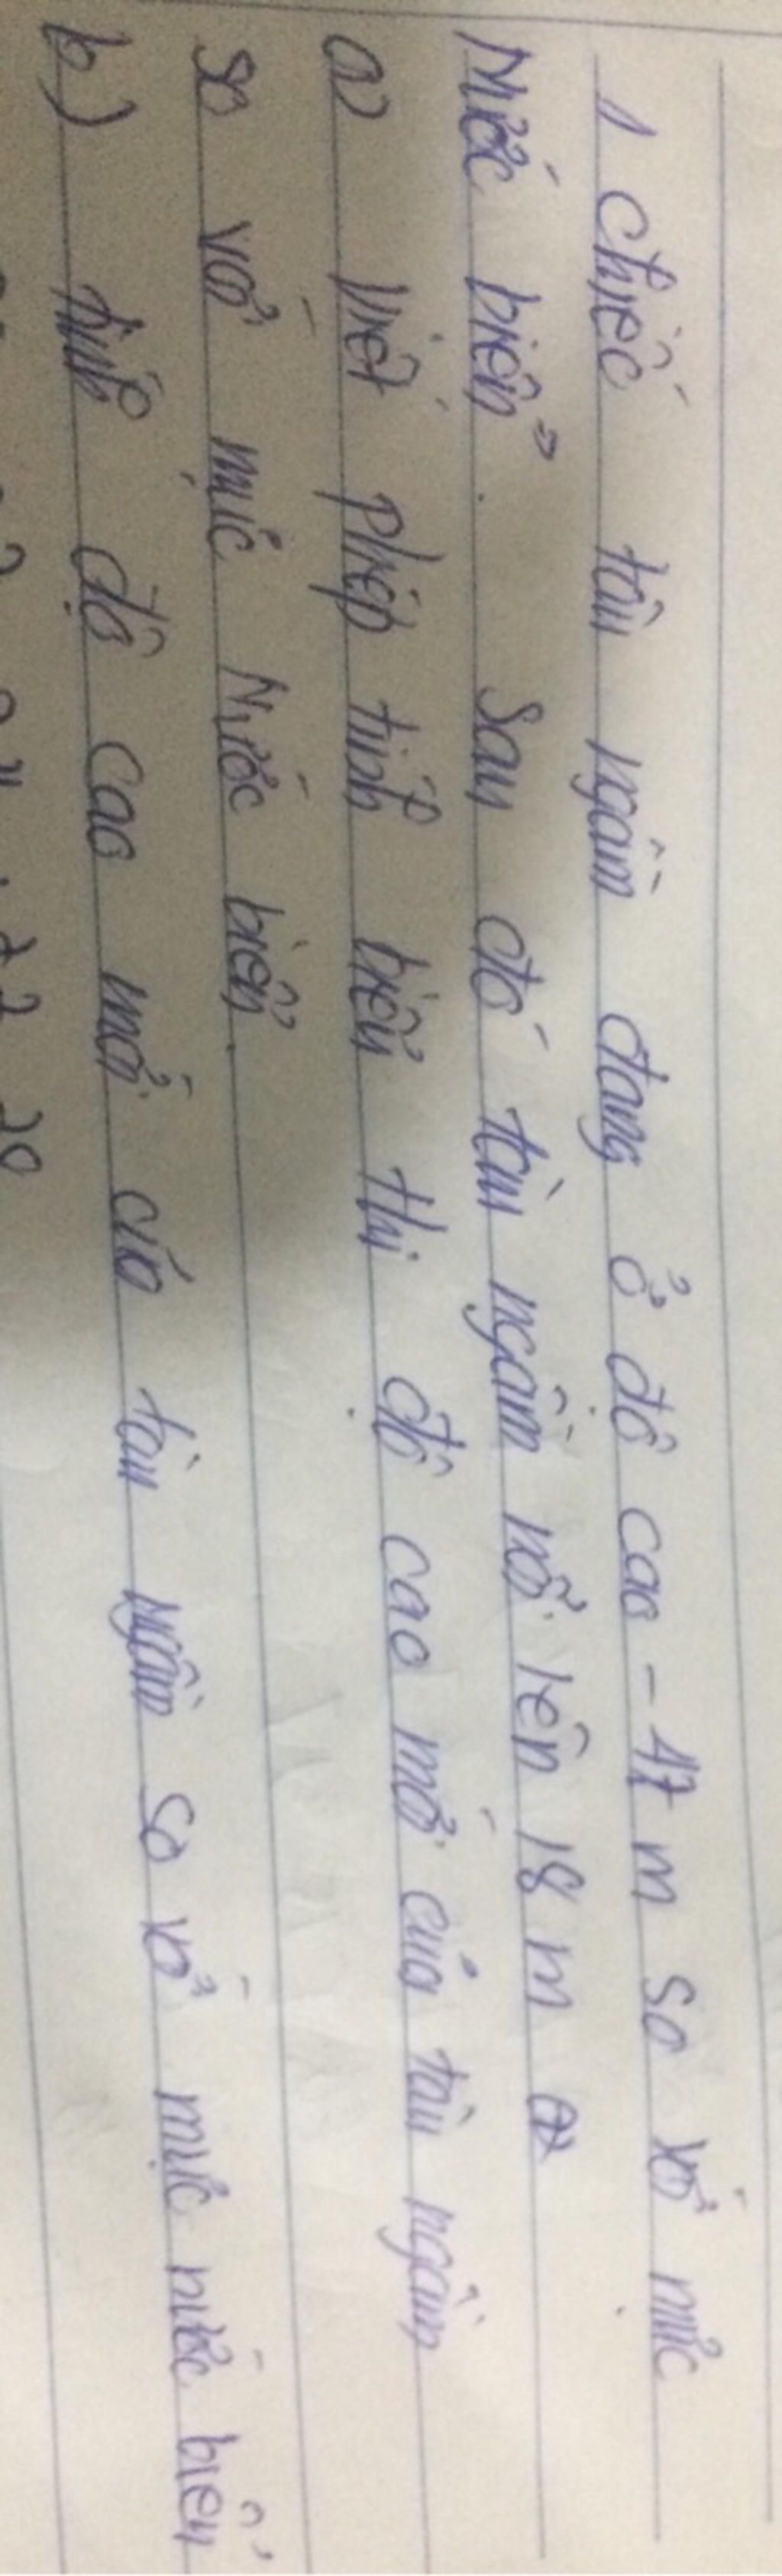 1 chiếc tàu ngầm đang ở độ cao -47 m so với mực
Nước biển. Sau đó tàu ngầm nổi lên 18 m
a) Viết phép tính biểu thị độ cao mới của tàu ngầm
so với mực Nước biển.
b) tính độ cao mới của tàu ngầm so với mực nước biển